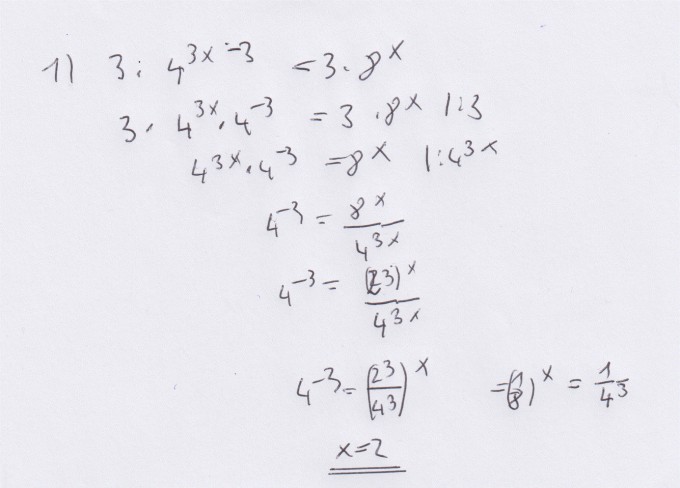 1) 3 · 4^{3x-3} = 3 · 8^x
3 · 4^{3x} · 4^{-3} = 3 · 8^x |:3
4^{3x} · 4^{-3} = 8^x |:4^{3x}
4^{-3} = \frac{8^x}{4^{3x}}
4^{-3} = \frac{(2^3)^x}{4^{3x}}
4^{-3} = \left(\frac{2^3}{4^3}\right)^x = \left(\frac{1}{8}\right)^x = \frac{1}{4^3}
x=2